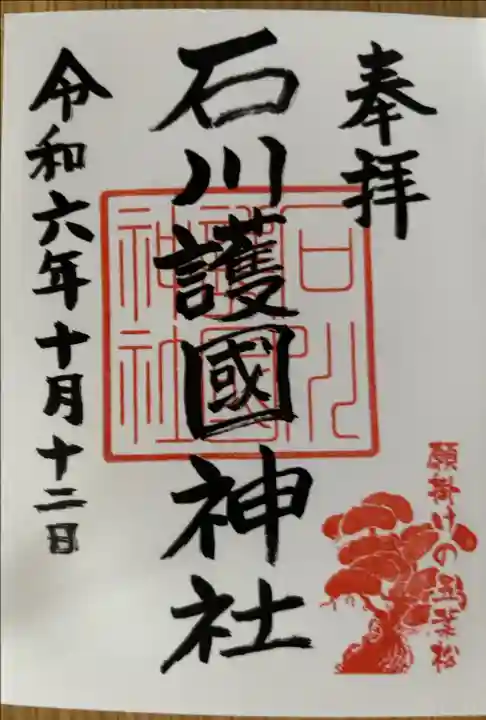 奉拝
石川護國神社
石川護國神社
令和六年十月十二日
願掛けの五葉松